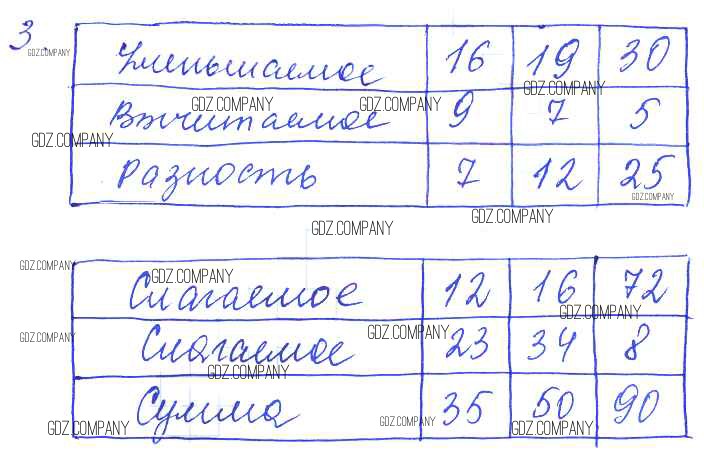 3.
GDZ.COMPANY
Уменьшаемое 16 19 30
GDZ.COMPANY GDZ.COMPANY GDZ.COMPANY
Вычитаемое 9 7 5
GDZ.COMPANY
Разность 7 12 25
GDZ.COMPANY
GDZ.COMPANY GDZ.COMPANY
GDZ.COMPANY GDZ.COMPANY
Слагаемое 12 16 72
GDZ.COMPANY
Слагаемое 23 34 8
GDZ.COMPANY GDZ.COMPANY
GDZ.COMPANY
Сумма 35 50 90
GDZ.COMPANY GDZ.COMPANY GDZ.COMPANY